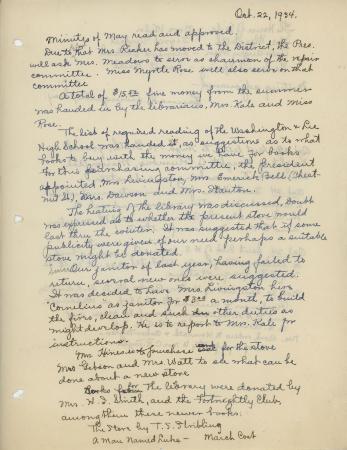 Oct. 22, 1934.
Minutes of May read and approved.
Due to that Mrs. Ricker has moved to the District, the Pres.
will ask Mrs. Meadows to serve as chairman of the repair
committee. Miss Myrtle Rose will also serve on that
committee
A total of $15.00 fine money from the summer
was handed in by the librarians, Mrs. Kale and Miss
Rose.
The list of required reading of the Washington & Lee
High School was handed in, as suggestions as to what
books to buy with the money we have for books.
For this purchasing committee, the President
appointed Mrs. Livingston, Mrs. Emerick, Bell (Chest-
nut St), Mrs. Dawson and Mrs. Stauton.
The heating of the library was discussed. Doubt
was expressed as to whether the present stove would
last thru the winter. It was suggested that if some
publicity were given of our need perhaps a suitable
stove might be donated.
Our janitor of last year, having failed to
return, several new ones were suggested.
It was decided to have Mrs. Livingston hire
Cornelius as janitor for $3.00 a month, to build
the fires, clean and such other duties as
might develop. He is to report to Mrs. Kale for
instructions.
Mrs. Hines is to purchase for the stove
Mrs. Gibson and Mrs. Watt to see what can be
done about a new stove
Books for the library were donated by
Mrs. H. F. Smith, and the Fortnightly Club,
among them these newer books:
The Store by T. S. Stribling
A Man Named Luke - March Cost